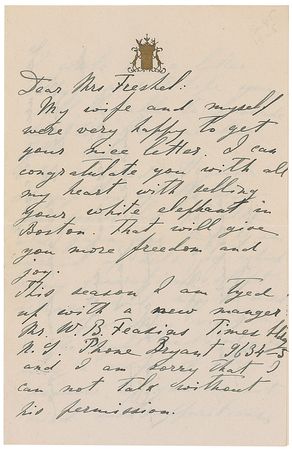 Dear Mrs Freshel:
My wife and myself
were very happy to get
your nice letter. I can
congratulate you with all
my heart with selling
your white elephant in
Boston. That will give
you more freedom and
joy.
This season I am tyed
up with a new manger
Mr. W. B. Feakins Times
N.Y. Phone Bryant 9634-5
and I am sorry that I
can not talk without
his permission.